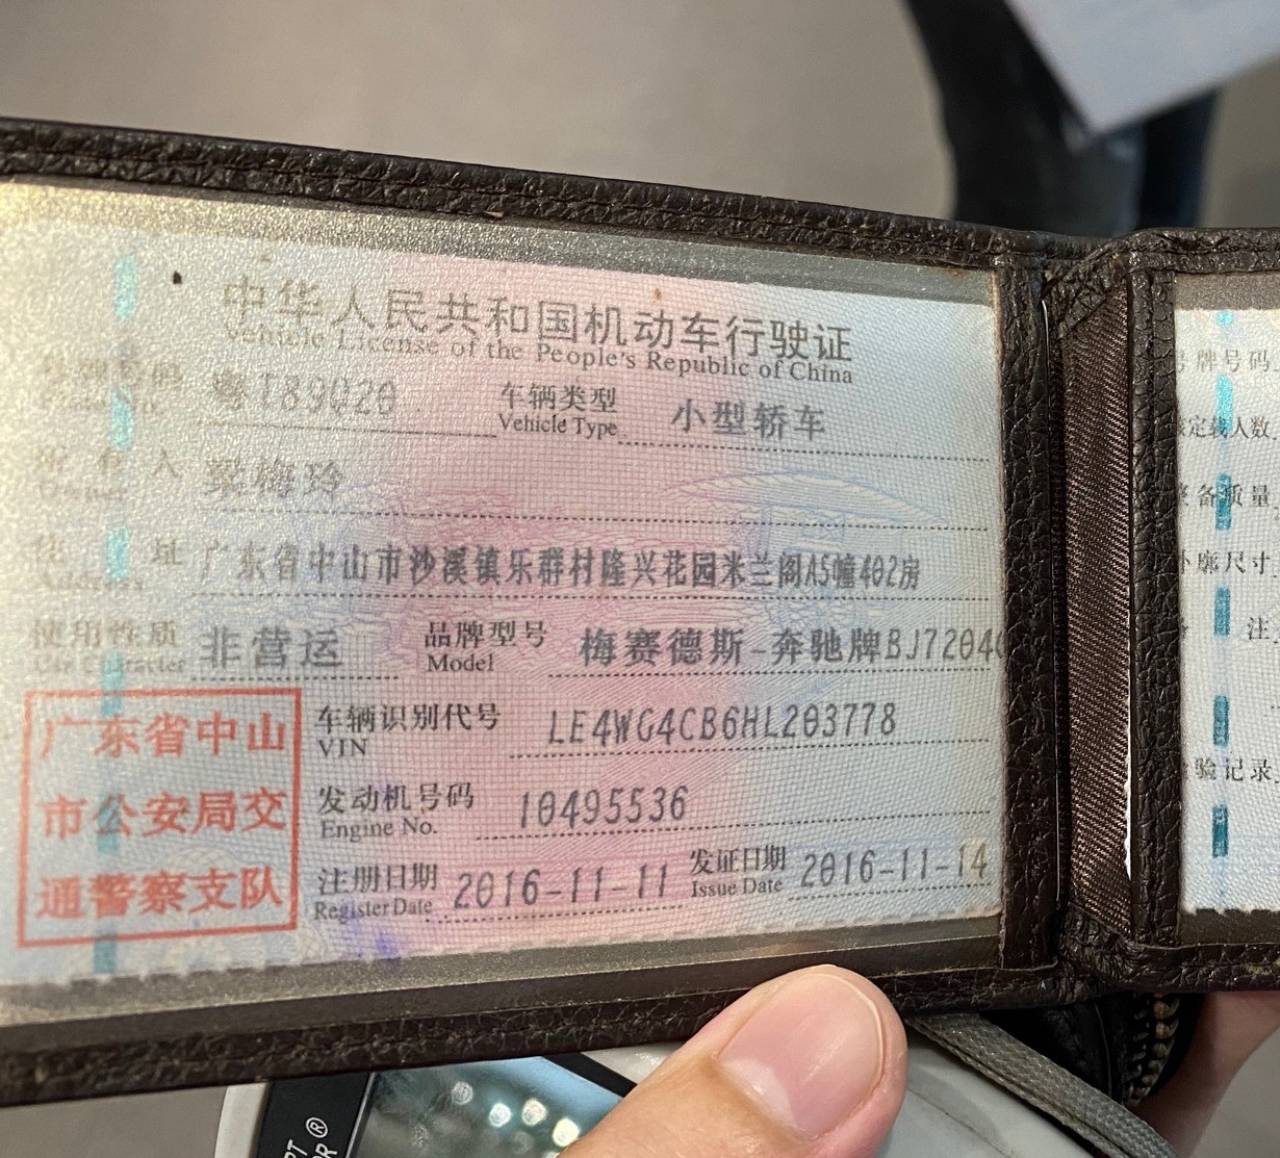 中华人民共和国机动车行驶证
Vehicle License of the People's Republic of China
号牌号码 车辆类型 小型轿车
Vehicle Type
所有人 梁梅玲
Owner
住址 广东省中山市沙溪镇乐群村隆兴花园米兰阁A5幢402房
Address
使用性质 非营运 品牌型号 梅赛德斯-奔驰牌BJ7204
Use Character Model
广东省中山
市公安局交
通警察支队
车辆识别代号 LE4WG4CB6HL203778
VIN
发动机号码 10495536
Engine No.
注册日期 2016-11-11 发证日期 2016-11-14
Register Date Issue Date
号牌号码
核定载人数
整备质量
外廓尺寸
注
检验记录